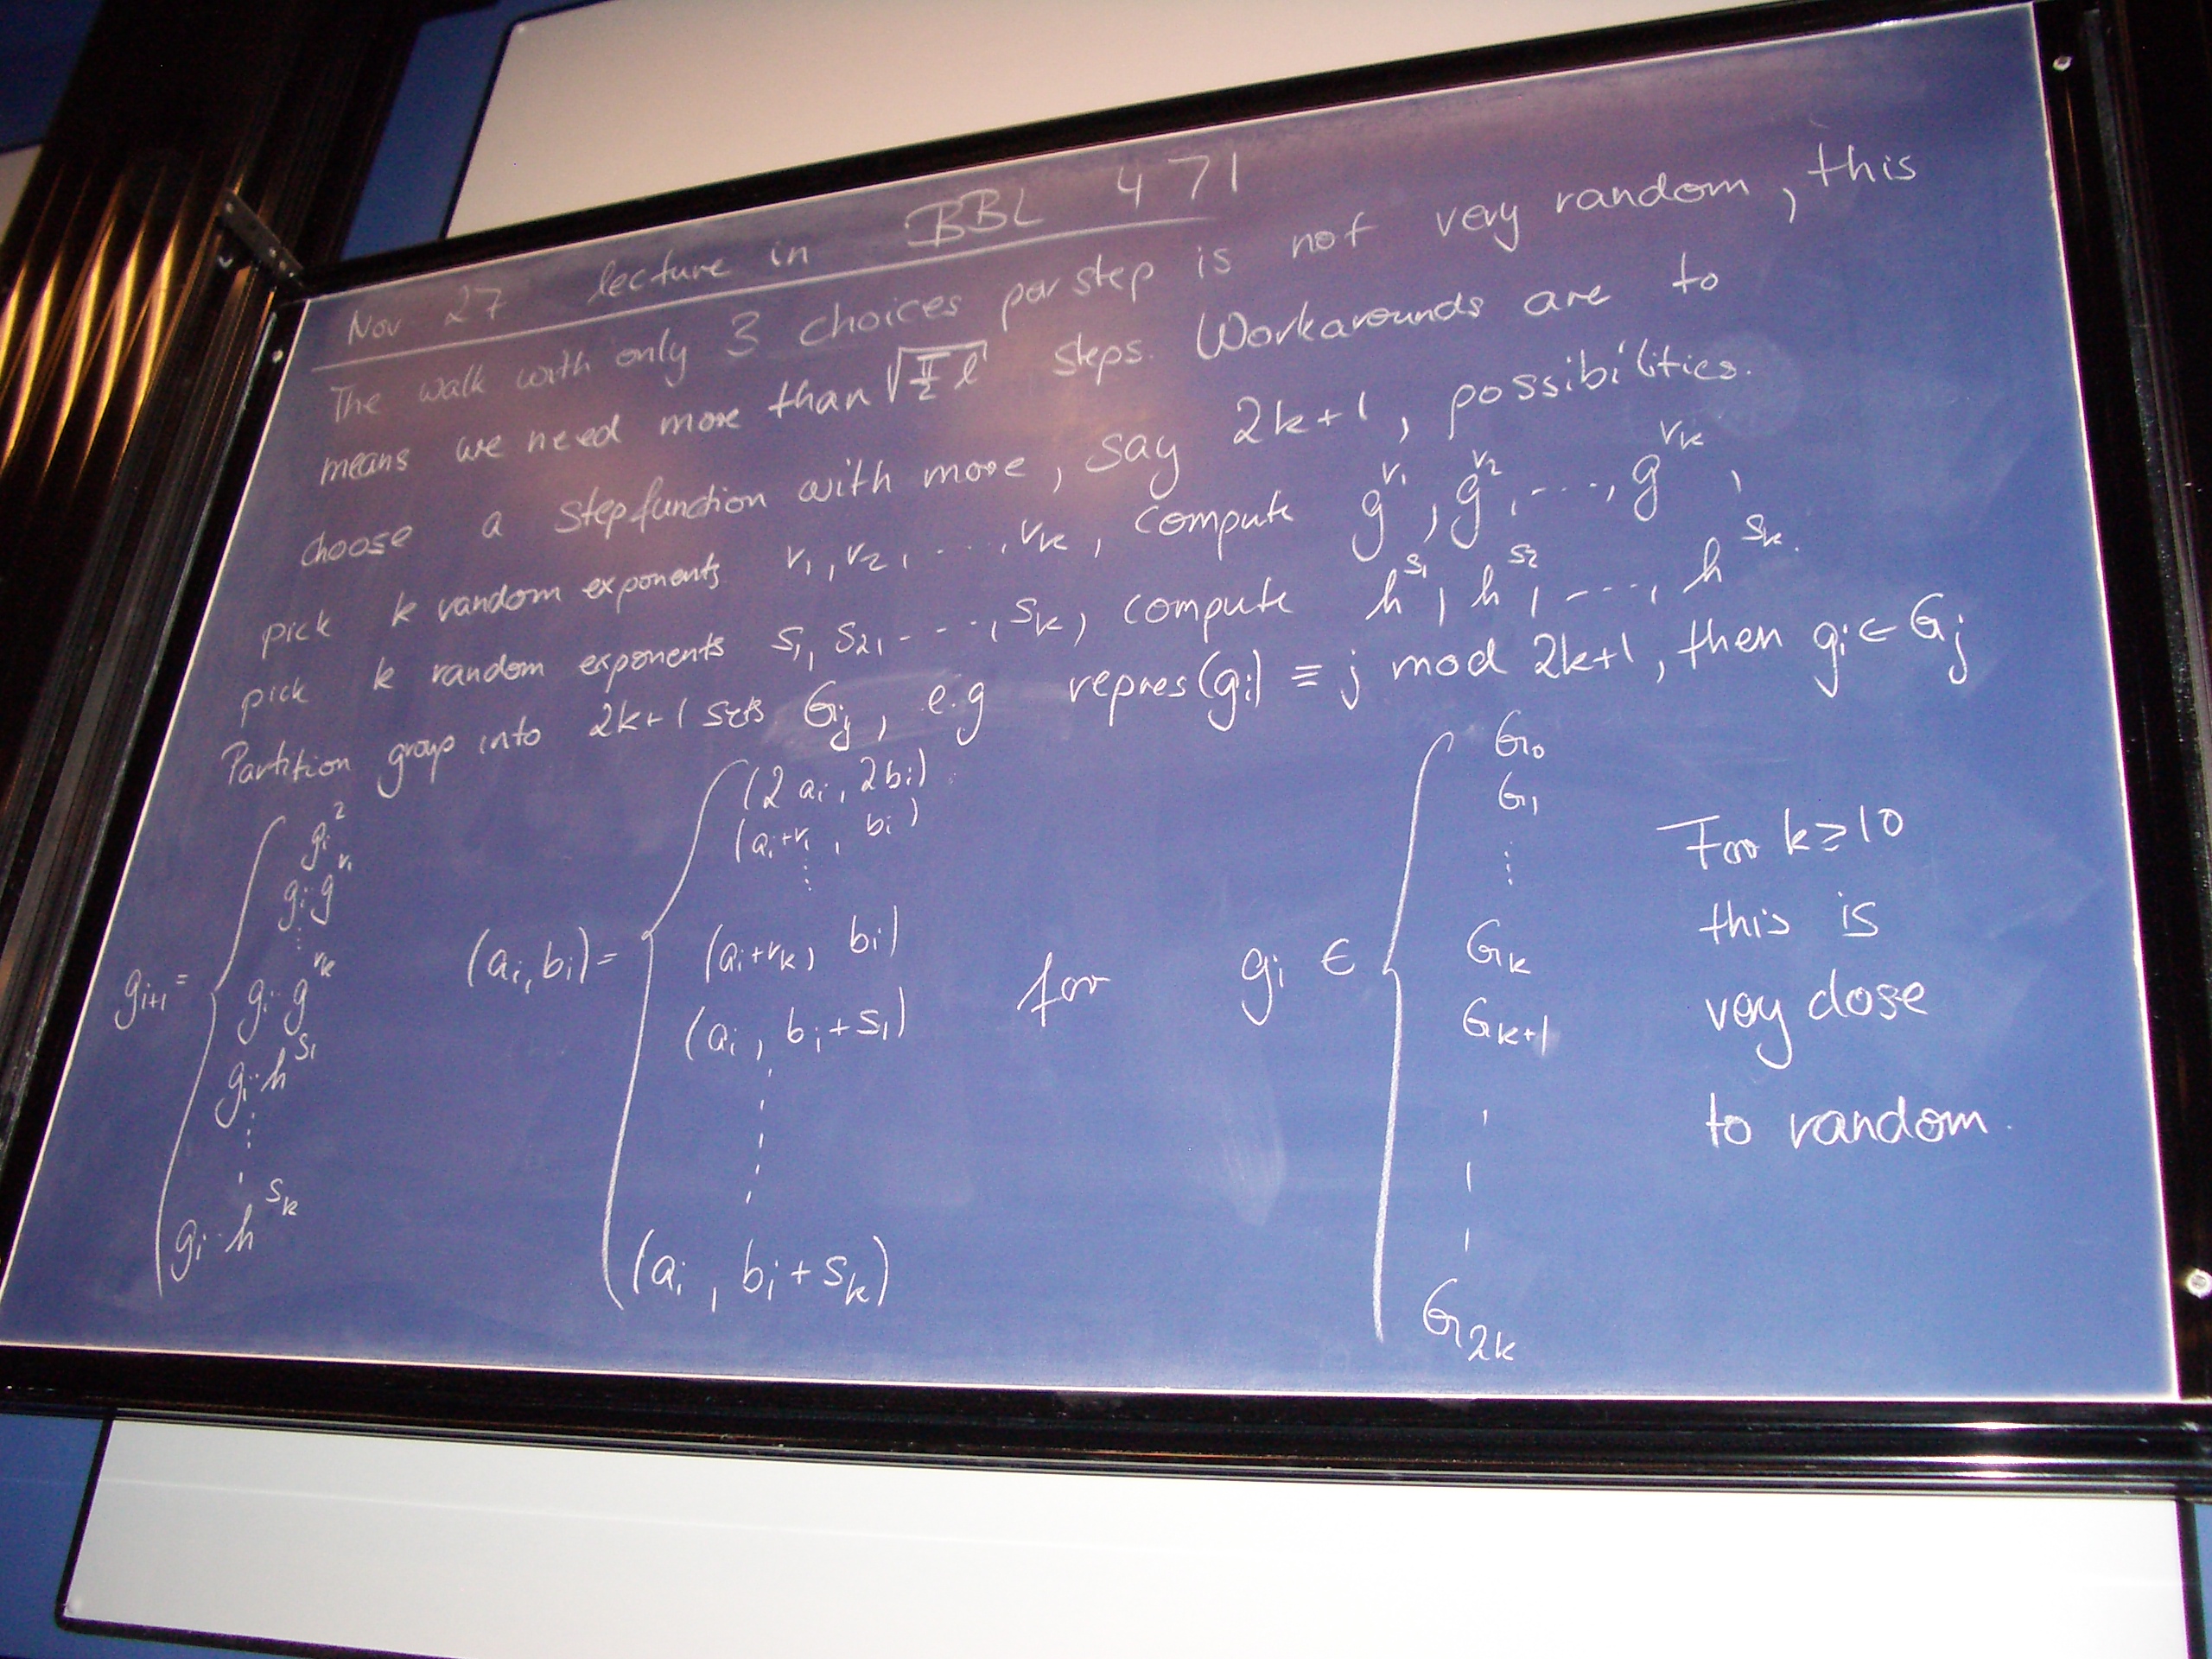 Nov 27 lecture in BBL 471
The walk with only 3 choices per step is not very random, this
means we need more than √(π/2 ℓ) steps. Workarounds are to
choose a stepfunction with more, say 2k+1, possibilities.
pick k random exponents r₁, r₂, ..., rₖ, compute g^r₁, g^r₂, ..., g^rₖ,
pick k random exponents s₁, s₂, ..., sₖ, compute h^s₁, h^s₂, ..., h^sₖ.
Partition group into 2k+1 sets Gⱼ, e.g repres(gᵢ) ≡ j mod 2k+1, then gᵢ ∈ Gⱼ
gᵢ₊₁ = { gᵢ²
gᵢ·g^r₁
⋮
gᵢ·g^rₖ
gᵢ·h^s₁
⋮
gᵢ·h^sₖ
(aᵢ, bᵢ) = { (2aᵢ, 2bᵢ)
(aᵢ+r₁, bᵢ)
⋮
(aᵢ+rₖ, bᵢ)
(aᵢ, bᵢ+s₁)
⋮
(aᵢ, bᵢ+sₖ)
for gᵢ ∈ { G₀
G₁
⋮
Gₖ
Gₖ₊₁
⋮
G₂ₖ
For k ≥ 10
this is
very close
to random.